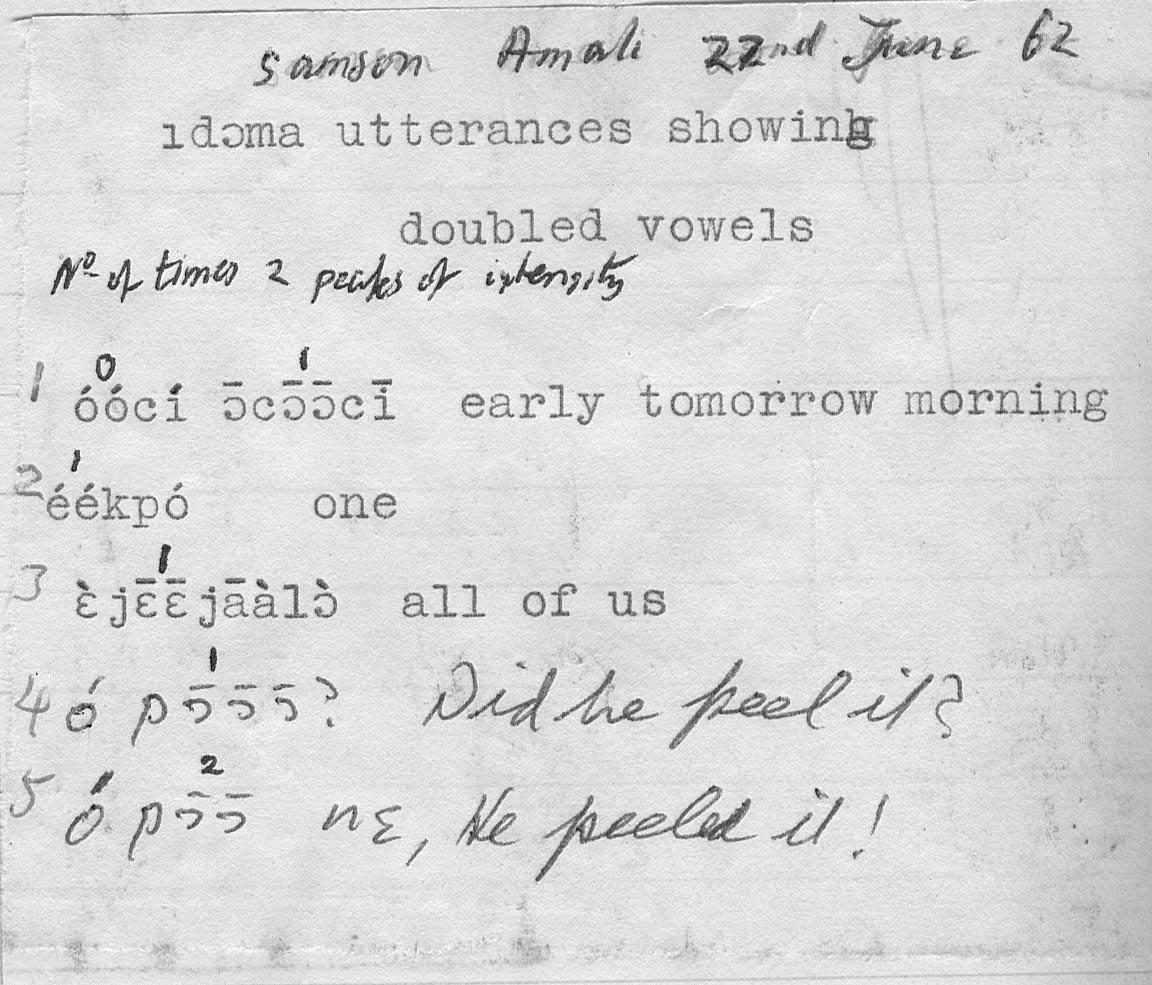 Samson Amali 22nd June 62
ıdɔma utterances showing
doubled vowels
Nº of times 2 peaks of intensity
0 1
1 óócí ɔ̄cɔ̄ɔ̄cī early tomorrow morning
1
2 éékpó one
1
3 ɛ̀jɛ̄ɛ̄jāàlɔ̀ all of us
1
4 ó pɔ̄ɔ̄ɔ̄? Did he peel it?
2
5 ó pɔ̄ɔ̄ nɛ, He peeled it!